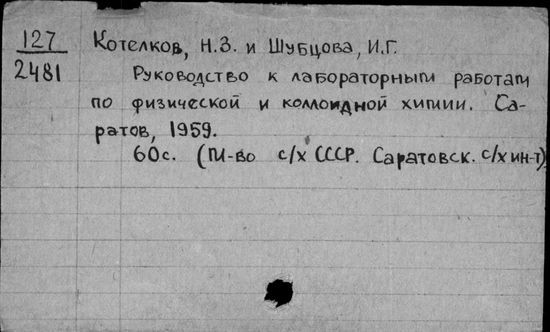 127
2481
Котелков, Н.З. и Шубцова, И.Г.
Руководство к лабораторным работам
по физической и коллоидной химии. Са-
ратов, 1959.
60с. (М-во с/х СССР. Саратовск. с/х ин-т)